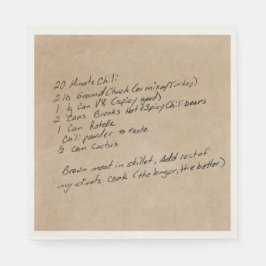 20 Minute Chili
2 lb Ground Chuck (or mix of Turkey)
1 ½ Can V8 (spicy good)
2 Cans Brooks Hot & Spicy Chili beans
1 Can Rotelle
Chili powder to taste
½ can Cactus
Brown meat in skillet. Add rest of
ingredients. Cook (the longer, the better)